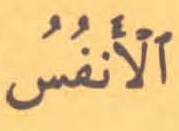 ٱلْأَنفُسُ